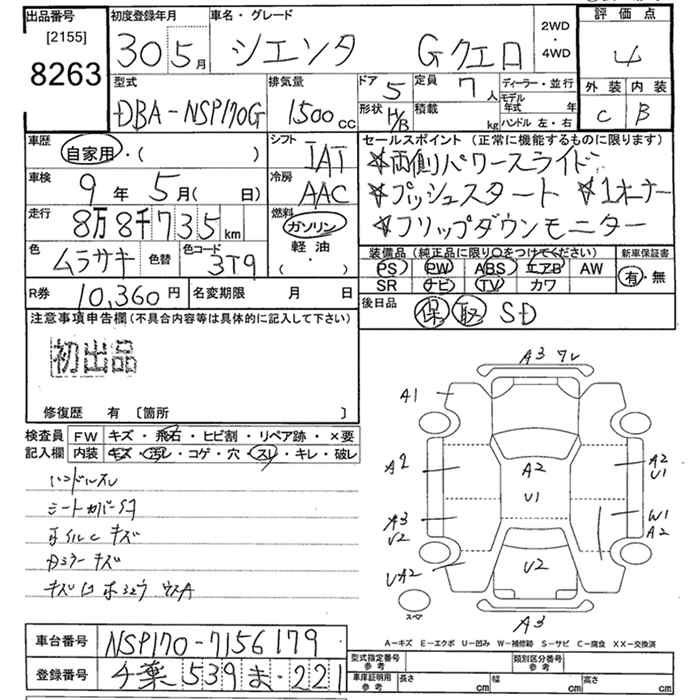 出品番号 初度登録年月 車名・グレード 2WD・4WD 評価点
[2155]
8263
30 5月 シエンタ Gクエロ 4
型式 排気量 ドア 5 定員 7人 ディーラー・並行 外装 内装
DBA-NSP170G 1500cc 形状 H/B 積載 kg モデル年式 年 C B
ハンドル 左・右
車歴 自家用・( ) シフト IAT セールスポイント(正常に機能するものに限ります)
☆両側パワースライド
車検 9年 5月( 日) 冷房 AAC ☆プッシュスタート ☆1オーナー
走行 8万8千735km 燃料 ガソリン 軽油 ( ・ ) ☆フリップダウンモニター
色 ムラサキ 色替 色コード 3T9
装備品(純正品に限り○をつけてください) 新車保証書
PS PW ABS エアB AW 有・無
SR ナビ TV カワ
R券 10,360円 名変期限 月 日
後日品 保 取 SD
注意事項申告欄(不具合内容等は具体的に記入して下さい)
初出品
修復歴 有 [箇所 ]
検査員記入欄 FW キズ・飛石・ヒビ割・リペア跡・×要
内装 キズ・汚レ・コゲ・穴・スレ・キレ・破レ
ハンドルスレ
シートカバー付
ホイルC キズ
カメラー キズ
A3
A1
A2 A2 A2
U1 U1
A3 W1
U2 A2
UA2 U2
スペア A3
A-キズ E-エクボ U-凹み W-補修跡 S-サビ C-腐食 XX-交換済
車台番号 NSP170-7156179
登録番号 千葉 539 ま・221
型式指定番号 参考 類別区分番号 参考
車庫証明用 参考 長さ cm 幅 cm 高さ cm